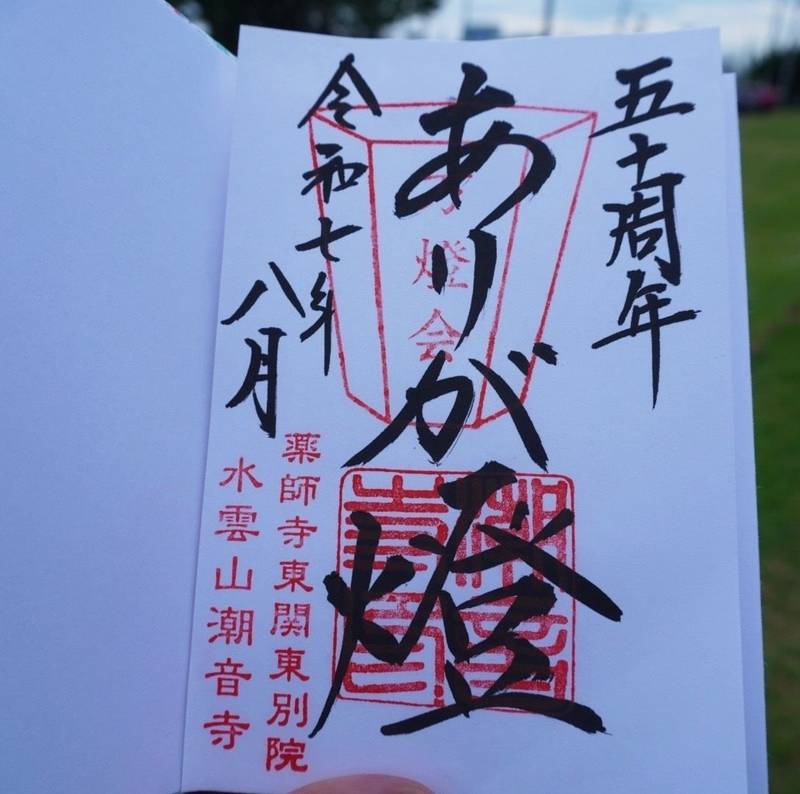 五十周年
ありが燈
燈会
令和七年
八月
薬師寺東関東別院
水雲山潮音寺